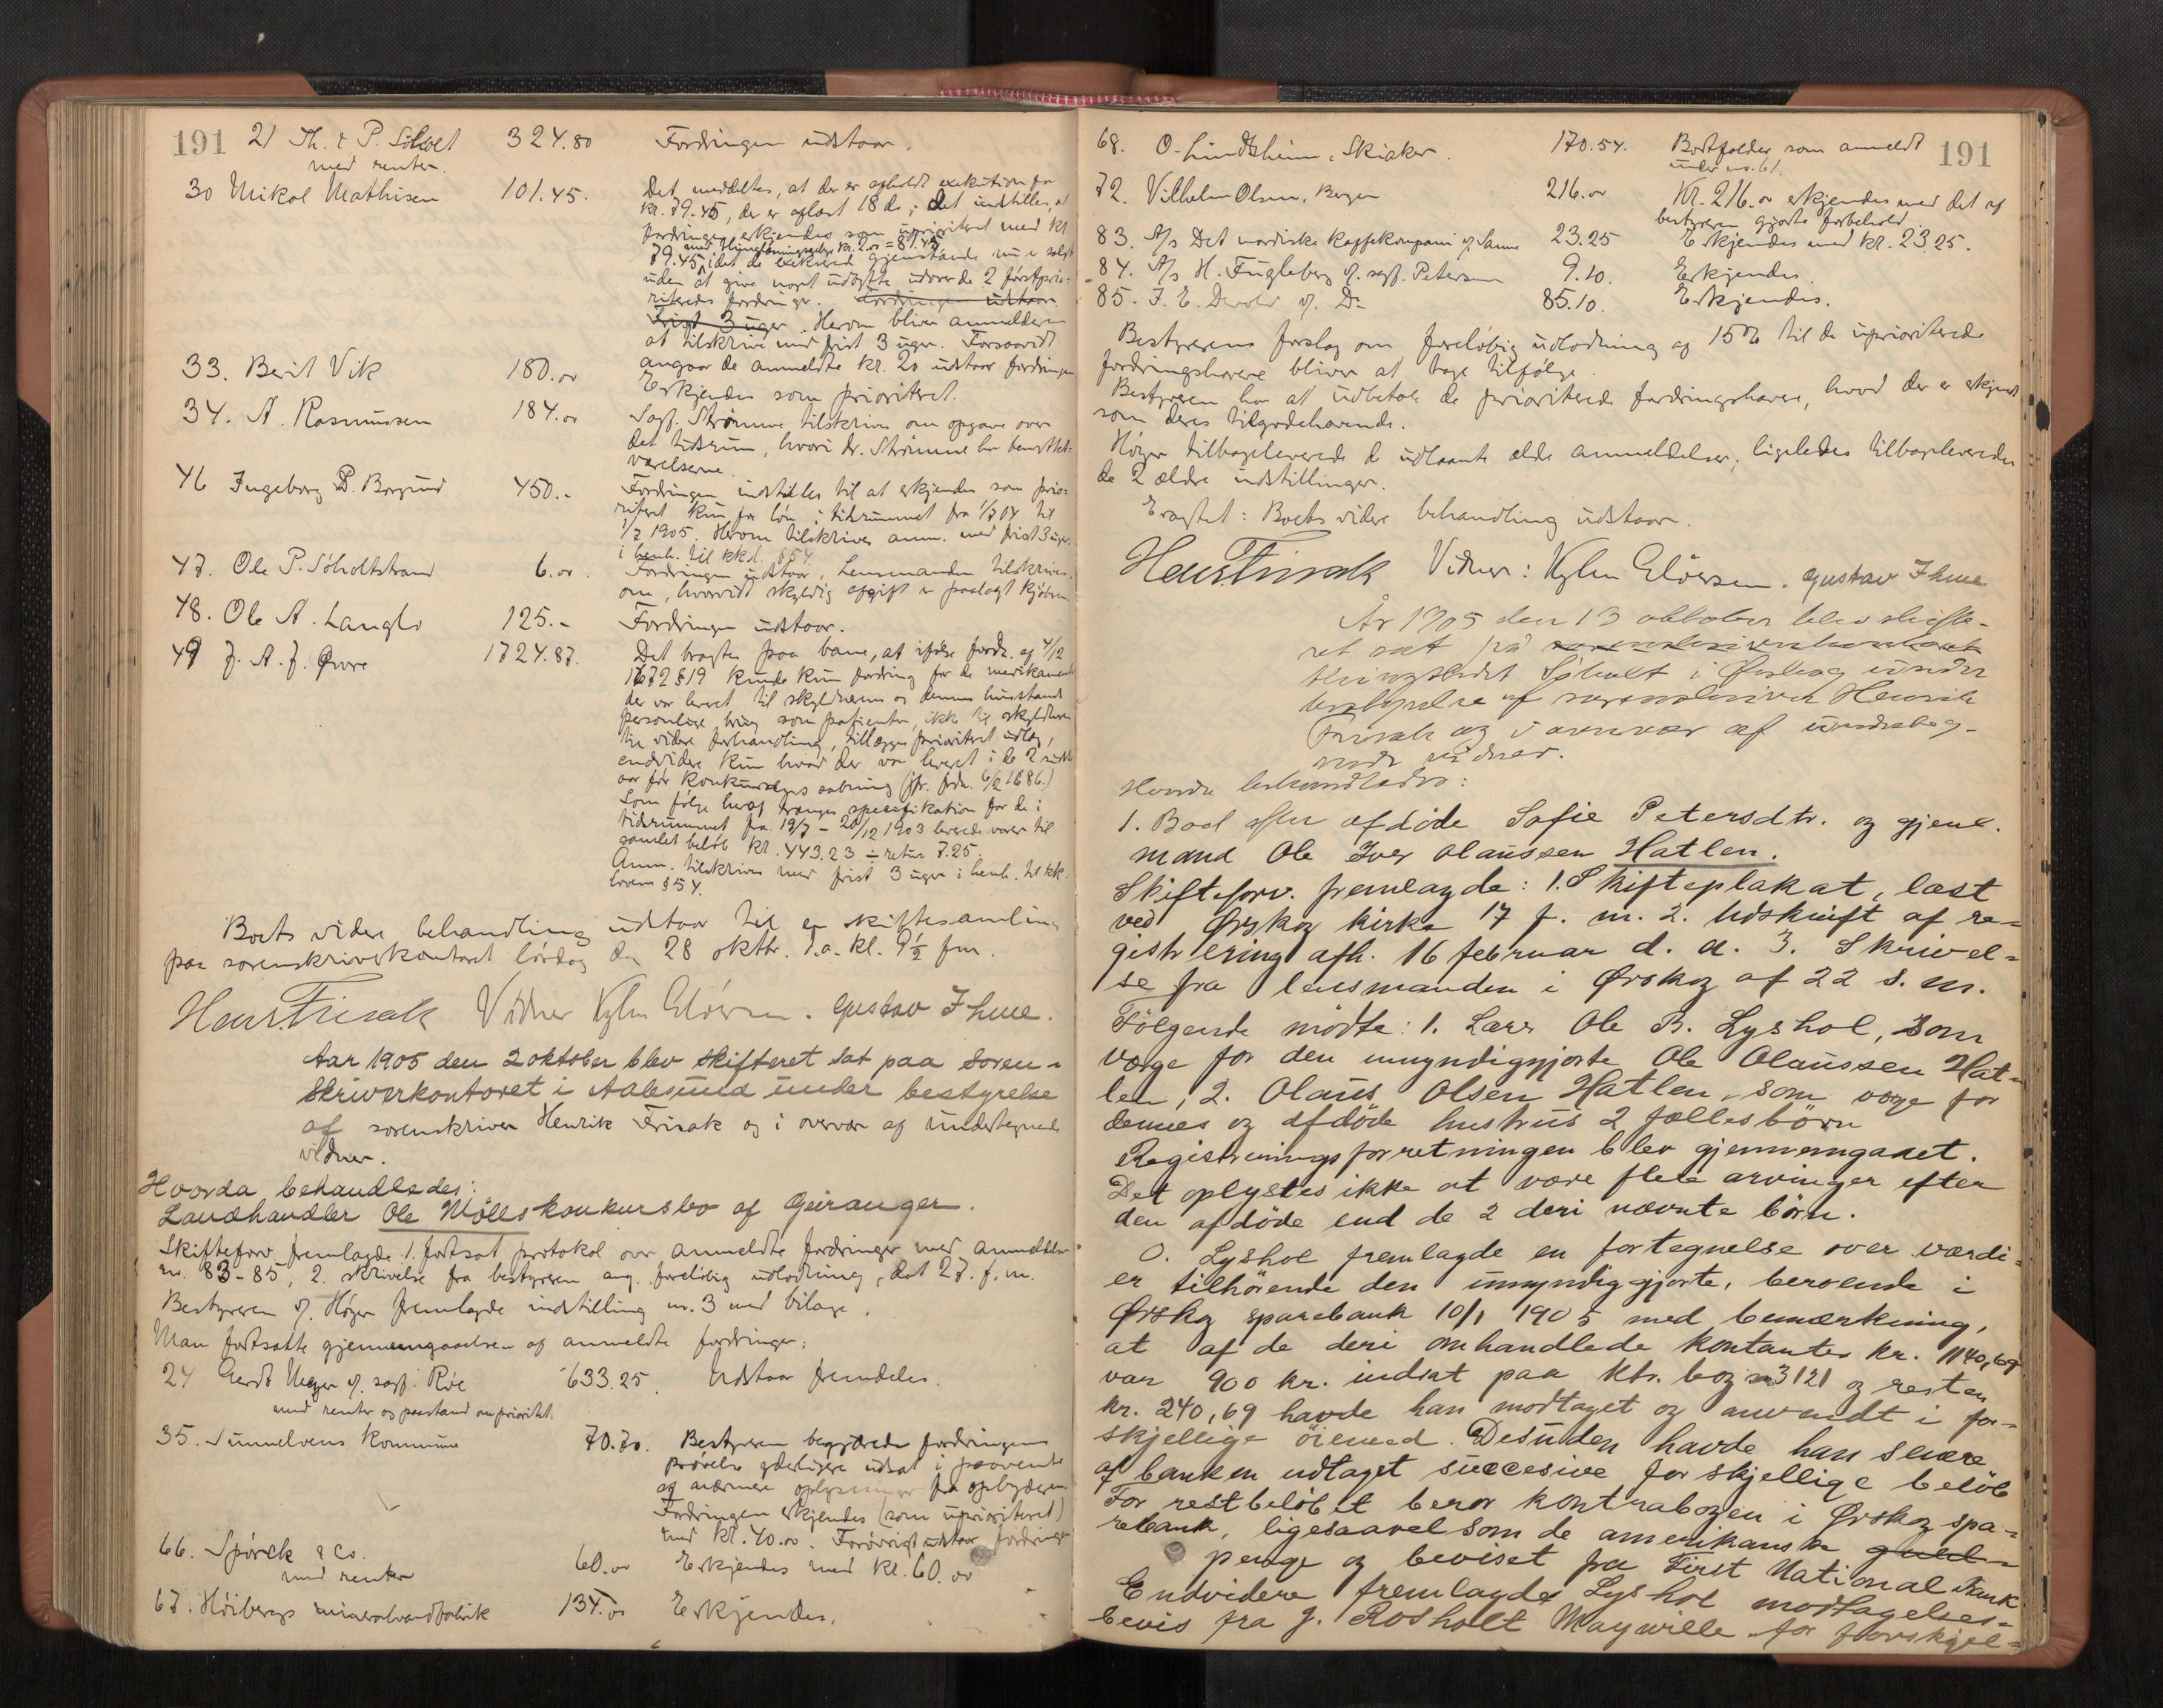 191 21 Th. & P. Sölvet 324.80 Fordringen udstaar.
med renter.
30 Nikol Mathisen 101.45. Det meddeltes, at der er afholdt exekution for
kr. 79.45, der er aflæst 18 ds; det indstilles, at
fordringen erkjendes som uprioriteret med kr
79.45, idet de exekverede gjenstande nu er solgt
uden at give noget udbytte udover de 2 førstprio-
riterede fordringer. Fordringen udstaar.
Frist 3 uger. Herom bliver anmelderen
at tilskrive med frist 3 uger. Forsaavidt
angaar de anmeldte kr. 20 udstaar fordringen
33. Berit Vik 180.00 Erkjendes som prioriteret.
34. A. Rasmussen 184.00 Sagf. Strømme tilskrives om opgave over
det tidsrum, hvori dr. Strømme har benyttet
værelserne.
46 Ingeborg P. Borgund 450.- Fordringen indstilles til at erkjendes som prio-
riteret kun for løn i tidsrummet fra 1/7 04 til
1/7 1905. Herom tilskrives anm. med frist 3 uger
i henh. til kkl. § 54.
47. Ole P. Søholtstrand 6.00. Fordringen udstaar, Lensmanden tilskrives
om, hvorvidt skyldig afgift er paalagt kjøberen
48. Ole A. Langlo 125.- Fordringen udstaar.
49 J. A. J. Øvre 1724.87. Det bragtes paa bane, at ifølge fordn. af 4/12
1672 § 19 kunde kun fordring for de medikamenter
der var leveret til skyldneren og dennes husstands
personlige brug som patienter, ikke til skyldneren
til videre forhandling, tillægges prioriteret udlæg,
endvidere kun hvad der var leveret i de 2 sidste
aar før konkursens aabning (jfr. frdn. 6/2 1686.)
Som følge heraf trænges specifikation for de i
tidsrummet fra 19/7 - 20/12 1903 leverede varer til
samlet beløb kr. 443.23 ÷ retur 7.25.
Anm. tilskrives med frist 3 uger i henh. til kk.
lovens § 54.
Boets videre behandling udstaar til en skiftesamling
paa sorenskriverkontoret lørdag den 28 oktbr. d.a. kl. 9½ fm.
Henr. Frisak Vidner Gustav Ihme.
Aar 1905 den 2 oktober blev skifteret sat paa soren-
skriverkontoret i Aalesund under bestyrelse
af sorenskriver Henrik Frisak og i overvær af undertegnede
vidner.
Hvorda behandledes:
Landhandler Ole Mölls konkursbo af Geiranger.
Skifteforv. fremlagde 1. fortsat protokol over anmeldte fordringer med anmeldelser
no. 83-85, 2. skrivelse fra bestyreren ang. foreløbig udlodning, dat 27. f.m.
Bestyreren v/ Høyer fremlagde indstilling nr. 3 med bilage.
Man fortsatte gjennemgaaelsen af anmeldte fordringer:
24 Gerdt Meyer v/ sagf. Röe 633.25. Udstaar fremdeles.
med renter og paastand om prioritet.
35. Sunnelvens kommune 70.70. Bestyreren begjærede fordringens
prøvelse yderligere udsat i paavente
af nærmere oplysninger fra opbyderen
Fordringen erkjendes (som uprioriteret)
med kr. 40.00. Forøvrigt udstaar fordringen
66. Spörck & co. 60.00 Erkjendes med kr. 60.00
med renter
67. Höibergs mineralvandfabrik 134.00 Erkjendes.
68. O. Lindsheim, Skiaker. 170.54. Bortfalder som anmeldt 191
under no. 61.
72. Vilhelm Olsen, Bergen 216.00 Kr. 216.00 erkjendes med det af
bestyreren gjorte forbehold.
83. A/s Det nordiske kaffekompani v/ Samme 23.25 Erkjendes med kr. 23.25.
84. A/s H. Fugleberg v/ sagf. Petersen 9.10. Erkjendes.
85. J. E. Devold v/ Do 85.10. Erkjendes.
Bestyrerens forslag om foreløbig udlodning af 15% til de uprioriterede
fordringshavere bliver at tage tilfølge.
Bestyreren har at udbetale de prioriterede fordringshavere, hvad der er erkjendt
som deres tilgodehavende.
Høyer tilbageleverede de udlaante ældre anmeldelser, ligeledes tilbageleveredes
de 2 ældre indstillinger.
Eragtet: Boets videre behandling udstaar.
Henr. Frisak Vidner: Gustav Ihme
År 1905 den 13 oktober blev skifte-
ret sat på sorenskriverkontoret
thingstedet Søholt i Ørskog under
bestyrelse af sorenskriver Henrik
Frisak og i overvær af underteg-
nede vidner.
Hvorda behandledes:
1. Boet efter afdöde Sofie Petersdtr. og gjenl.
mand Ole Iver Olaussen Hatlen.
Skifteforv. fremlagde: 1. Skifteplakat, læst
ved Ørskog kirke 17 f. m. 2. Udskrift af re-
gistrering afh. 16 februar d. a. 3. Skrivel-
se fra lensmanden i Ørskog af 22 s. m.
Følgende mödte: 1. Lærer Ole B. Lyshol, som
værge for den umyndiggjorte Ole Olaussen Hat-
len, 2. Olaus Olsen Hatlen, som værge for
dennes og afdöde hustrus 2 fællesbörn
Registreringsforretningen blev gjennemgaaet.
Det oplystes ikke at være flere arvinger efter
den afdöde end de 2 deri nævnte börn.
O. Lyshol fremlagde en fortegnelse over værdi-
er tilhörende den umyndiggjorte, beroende i
Ørskog sparebank 10/1 1905 med bemærkning,
at af de deri omhandlede kontanter kr. 1140,69
var 900 kr. indsat paa ktr. bog no 3121 og resten
kr. 240,69 havde han modtaget og anvendt i for-
skjellige öiemed. Desuden havde han senere
af banken udtaget succesive forskjellige belöb
For restbelöbet beror kontrabogen i Ørskog spa-
rebank, ligesaavel som de amerikanske guld-
penge og beviset fra First National Bank
Endvidere fremlagde Lyshol modtagelses-
bevis fra J. Rosholt Maywille for forskjel-